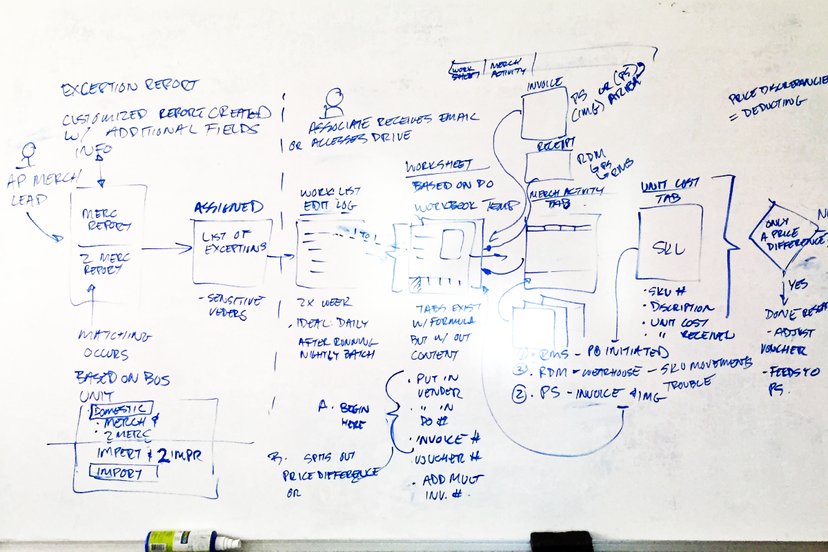 EXCEPTION REPORT
CUSTOMIZED REPORT CREATED
W/ ADDITIONAL FIELDS
INFO
AP MERCH
LEAD
MERC
REPORT
2 MERC
REPORT
MATCHING
OCCURS
BASED ON BOS
UNIT
• DOMESTIC
• MERCH &
• 2 MERC
IMPERT & 2 IMPR
IMPORT
ASSIGNED
LIST OF
EXCEPTIONS
- SENSITIVE
VEDERS
ASSOCIATE RECEIVES EMAIL
OR ACCESSES DRIVE
WORK LIST
EDIT LOG
2X WEEK
• IDEAL: DAILY
AFTER RUNNING
NIGHTLY BATCH
A. BEGIN
HERE
B. SPITS OUT
PRICE DIFFERENCE
OR
WORKSHEET
BASED ON PO
WORKBOOK TEMP
TABS EXIST
W/ FORMULA
BUT W/ OUT
CONTENT
• PUT IN
VENDER
• " IN
DO #
• INVOICE #
VOUCHER #
• ADD MULT
INV. #
WORK
SHEET
MERCH
ACTIVITY
INVOICE
PS OR (PS)
(IMG)
RECEIPT
RDM
RMS
MERCH ACTIVITY
TAB
UNIT COST
TAB
SKU
• SKU #
• DSCRIPTION
• UNIT COST
" RECEIVER
RMS - PO INITIATED
③. RDM - WERHOUSE - SKU MOVEMENTS
TROUBLE
②. PS - INVOICE & IMG
PRICE DISCREPANCIES
= DEDUCTING
ONLY
A PRICE
DIFFERENCE
YES
DONE
- ADJUST
VOUCHER
- FEEDS TO
PS.